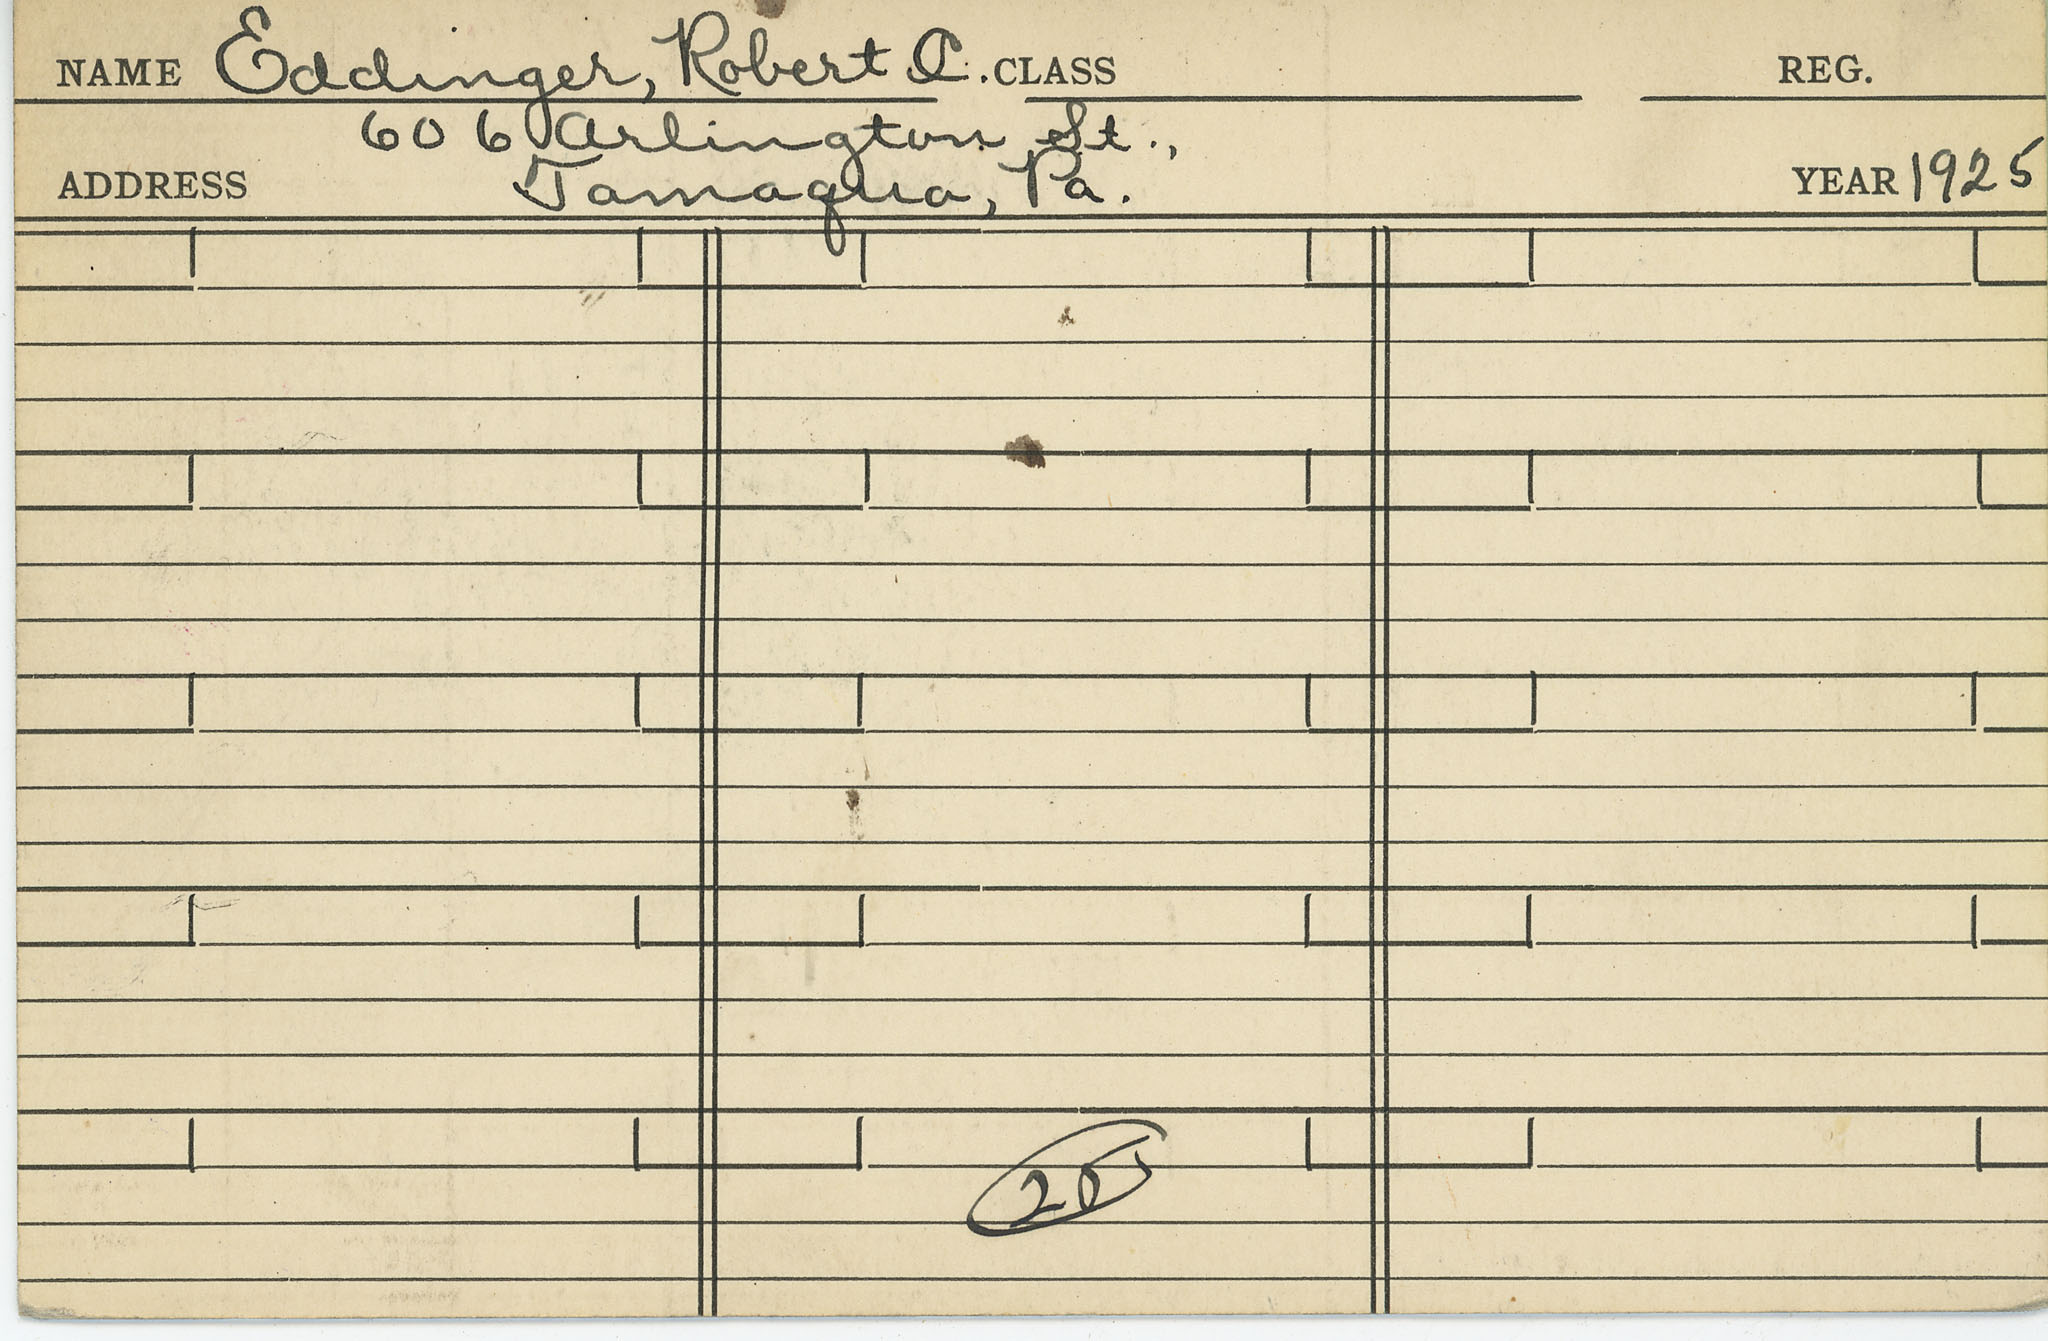 NAME Eddinger, Robert C. CLASS REG.
606 Arlington St.,
ADDRESS Tamaqua, Pa. YEAR 1925
20